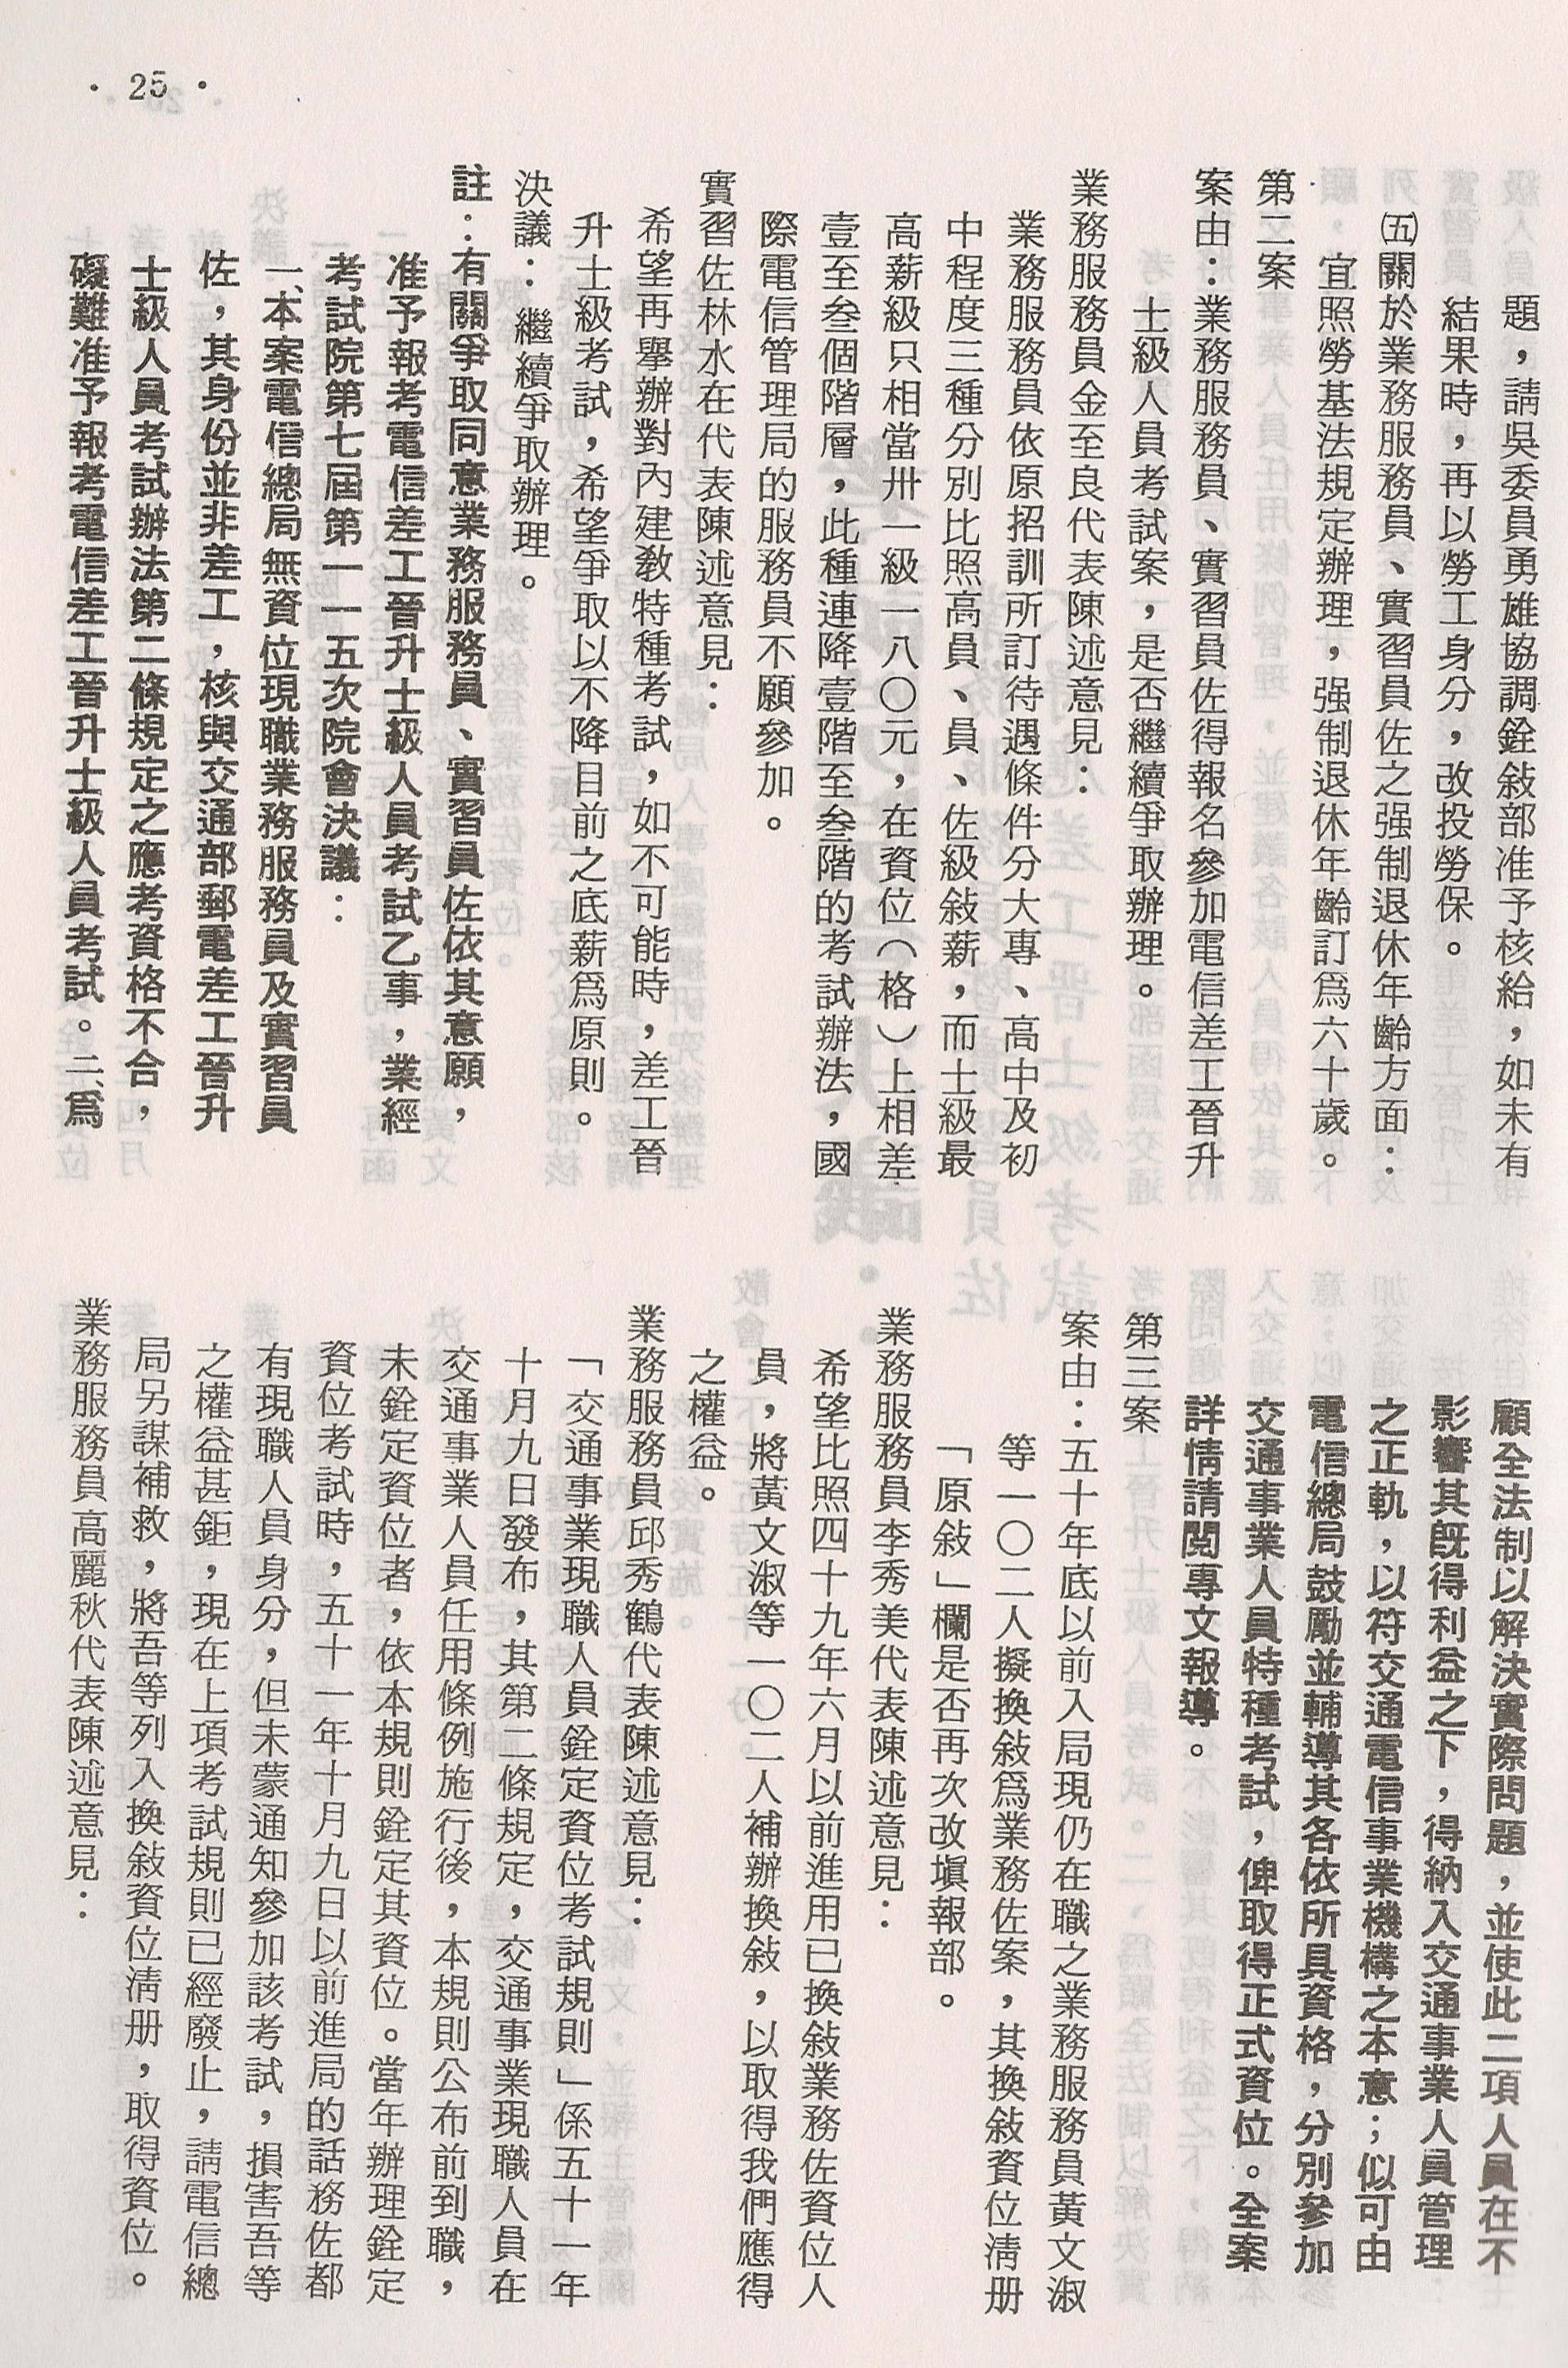 · 25 ·
題，請吳委員勇雄協調銓敍部准予核給，如未有
結果時，再以勞工身分，改投勞保。
㈤關於業務服務員、實習員佐之强制退休年齡方面：
宜照勞基法規定辦理，强制退休年齡訂爲六十歲。
第二案
案由：業務服務員、實習員佐得報名參加電信差工晉升
士級人員考試案，是否繼續爭取辦理。
業務服務員金至良代表陳述意見：
業務服務員依原招訓所訂待遇條件分大專、高中及初
中程度三種分別比照高員、員、佐級敍薪，而士級最
高薪級只相當卅一級一八〇元，在資位（格）上相差
壹至叁個階層，此種連降壹階至叁階的考試辦法，國
際電信管理局的服務員不願參加。
實習佐林水在代表陳述意見：
希望再舉辦對內建敎特種考試，如不可能時，差工晉
升士級考試，希望爭取以不降目前之底薪爲原則。
決議：繼續爭取辦理。
註：有關爭取同意業務服務員、實習員佐依其意願，
准予報考電信差工晉升士級人員考試乙事，業經
考試院第七屆第一一五次院會決議：
一、本案電信總局無資位現職業務服務員及實習員
佐，其身份並非差工，核與交通部郵電差工晉升
士級人員考試辦法第二條規定之應考資格不合，
礙難准予報考電信差工晉升士級人員考試。二、爲
顧全法制以解決實際問題，並使此二項人員在不
影響其旣得利益之下，得納入交通事業人員管理
之正軌，以符交通電信事業機構之本意；似可由
電信總局鼓勵並輔導其各依所具資格，分別參加
交通事業人員特種考試，俾取得正式資位。全案
詳情請閱專文報導。
第三案
案由：五十年底以前入局現仍在職之業務服務員黃文淑
等一〇二人擬換敍爲業務佐案，其換敍資位清册
「原敍」欄是否再次改塡報部。
業務服務員李秀美代表陳述意見：
希望比照四十九年六月以前進用已換敍業務佐資位人
員，將黃文淑等一〇二人補辦換敍，以取得我們應得
之權益。
業務服務員邱秀鶴代表陳述意見：
「交通事業現職人員銓定資位考試規則」係五十一年
十月九日發布，其第二條規定，交通事業現職人員在
交通事業人員任用條例施行後，本規則公布前到職，
未銓定資位者，依本規則銓定其資位。當年辦理銓定
資位考試時，五十一年十月九日以前進局的話務佐都
有現職人員身分，但未蒙通知參加該考試，損害吾等
之權益甚鉅，現在上項考試規則已經廢止，請電信總
局另謀補救，將吾等列入換敍資位清册，取得資位。
業務服務員高麗秋代表陳述意見：